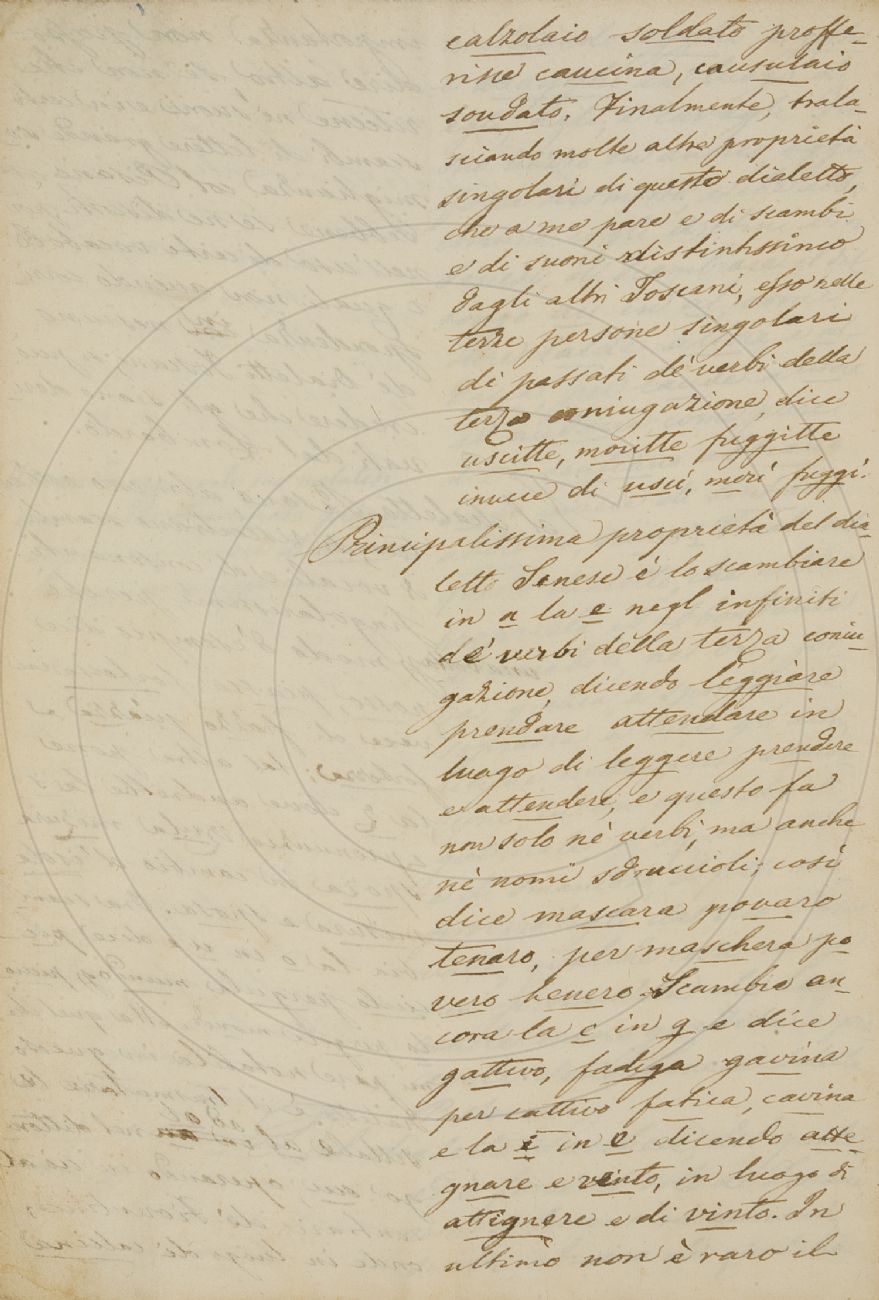 calzolaio soldato proffe-
risce caucina, causulaio
soudato. Finalmente, trala-
sciando molte altre proprietà
singolari di questo dialetto,
che a me pare e di scambi
e di suoni distintissimo
dagli altri Toscani, esso nelle
terze persone singolari
di passati de' verbi della
terza coniugazione, dice
uscitte, moritte fuggitte
invece di uscì, morì fuggì.
Principalissima proprietà del dia-
letto Senese è lo scambiare
in a la e negl infiniti
de' verbi della terza coniu-
gazione, dicendo leggiare
prendare attendare in
luogo di leggere prendere
e attendere, e questo fa
non solo nè verbi, ma anche
nè nomi sdruccioli; così
dice mascara povaro
tenaro, per maschera po-
vero tenero. Scambia an-
cora la c in g e dice
gattivo, fadiga gavina
per cattivo fatica, cavina
e la i in e dicendo atte-
gnare e vento, in luogo di
attignere e di vinto. In
ultimo non è raro il